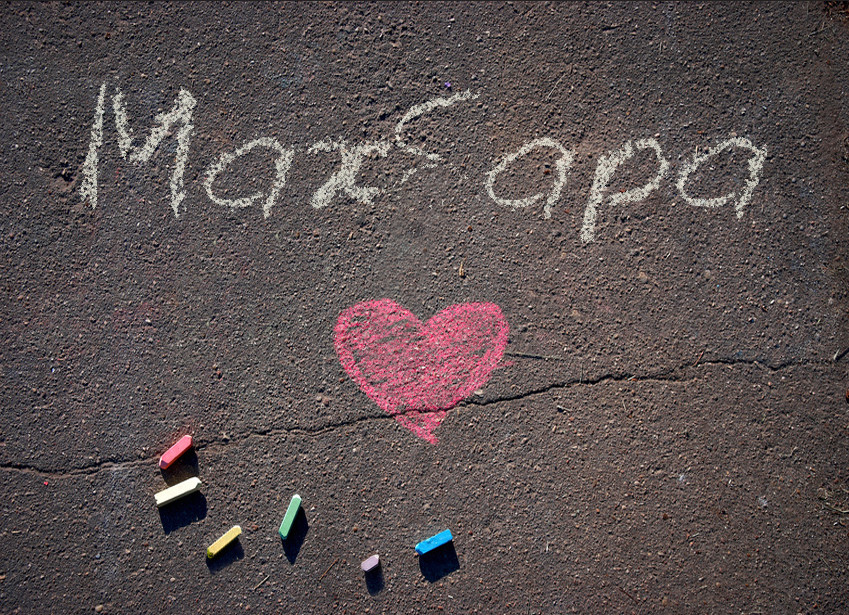 Махбара